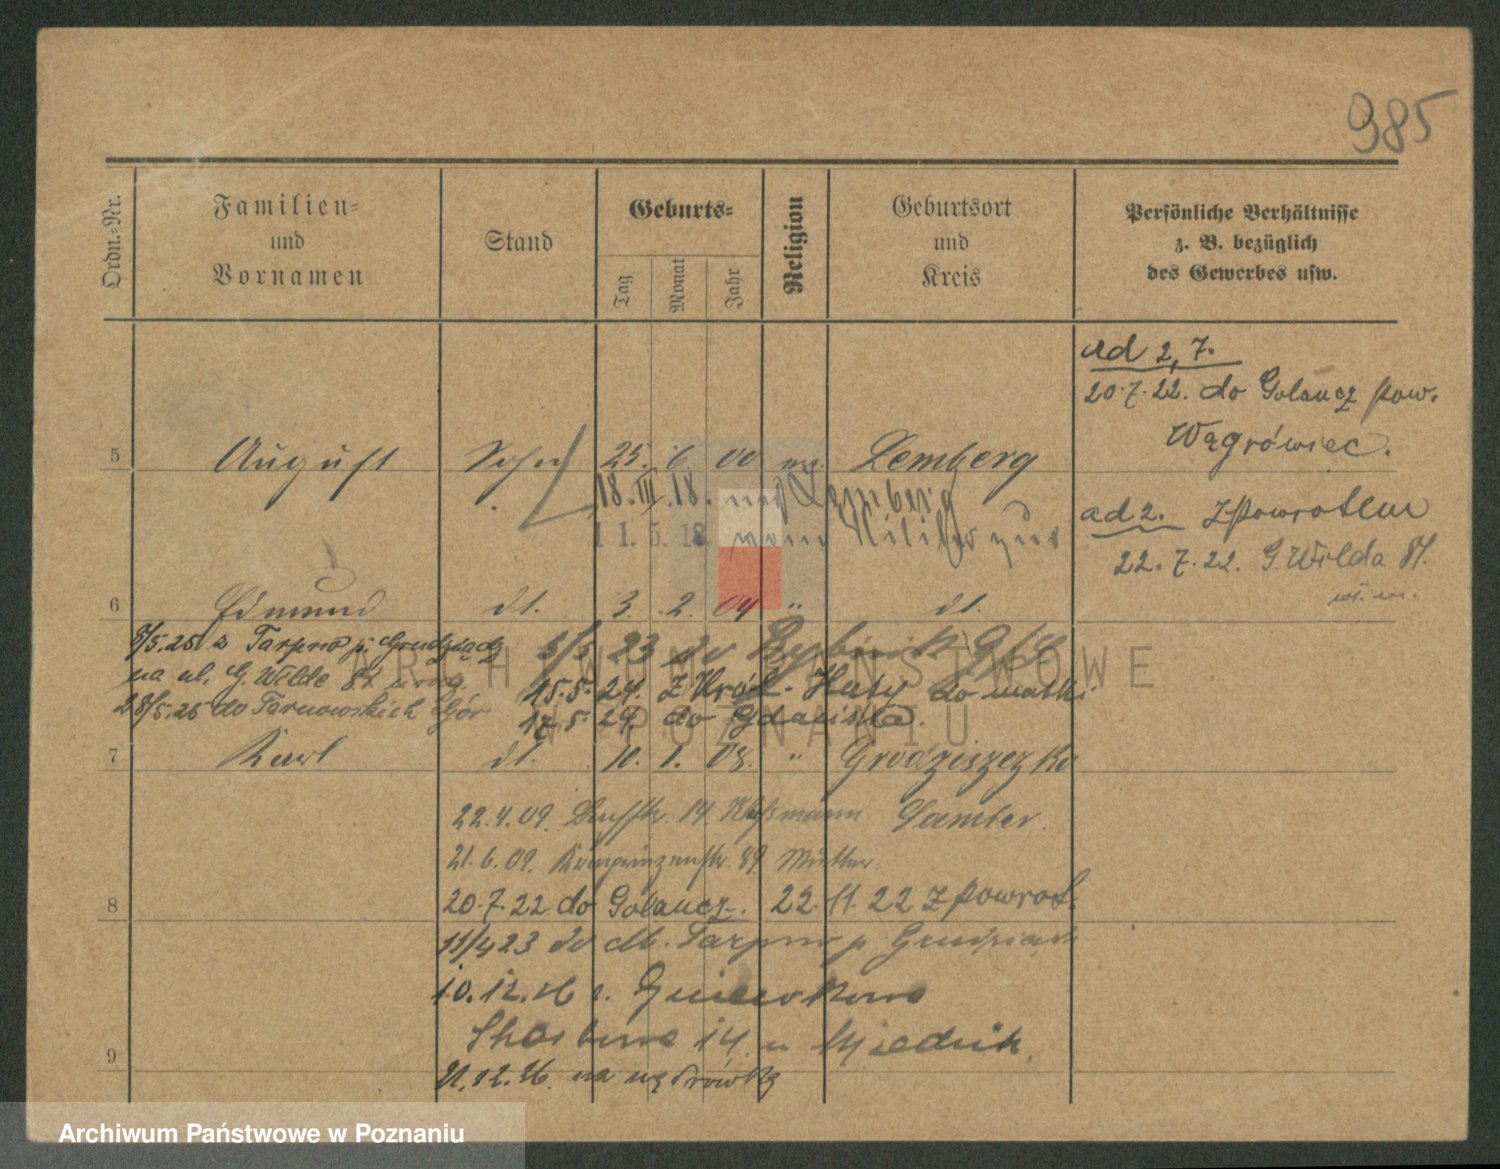 985
Ordn.-Nr.
Familien-
und
Vornamen
Stand
Geburts-
Tag
Monat
Jahr
Religion
Geburtsort
und
Kreis
Persönliche Verhältnisse
z. B. bezüglich
des Gewerbes usw.
ad 2, 7.
20.7.22. do Golancz pow.
Wągrówiec.
5 August Sohn 25. 6. 00 Lemberg
18.III.18. nach Lemberg
11.5.18. vom Militär zur
ad 2. z powrotem
22.7.22. G. Wilda 81.
6 Edmund dt. 3. 2. 04 " dt.
8/5.25 z Tarpno p. Grudziądz
5/5 23 do Rybnik G/Sl
na ul. G. Wilda 81
15.5.24. z Król. Huty do matki
28/5.25 do Tarnowskich Gór
17.5.24. do Gdańska.
7 Karl dt. 10. 1. 08. " Grodziszczko
22.4.09. 14 Samter.
21.6.09. Kronprinzenstr. 89 Mutter
8 20.7.22 do Golancz. 22.11.22 z powrot.
11/4 23 do Tarpno p. Grudziądz
10.12.26 z. Gniewkowo
14 u
9 21.12.26. na wędrówkę
ARCHIWUM PAŃSTWOWE
W POZNANIU
Archiwum Państwowe w Poznaniu